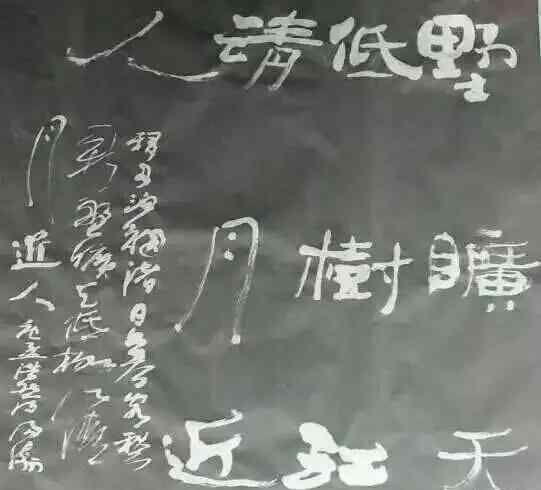 野曠天
低樹江
清月近
人
移舟泊烟渚日暮客愁
新野曠天低樹江清
月近人